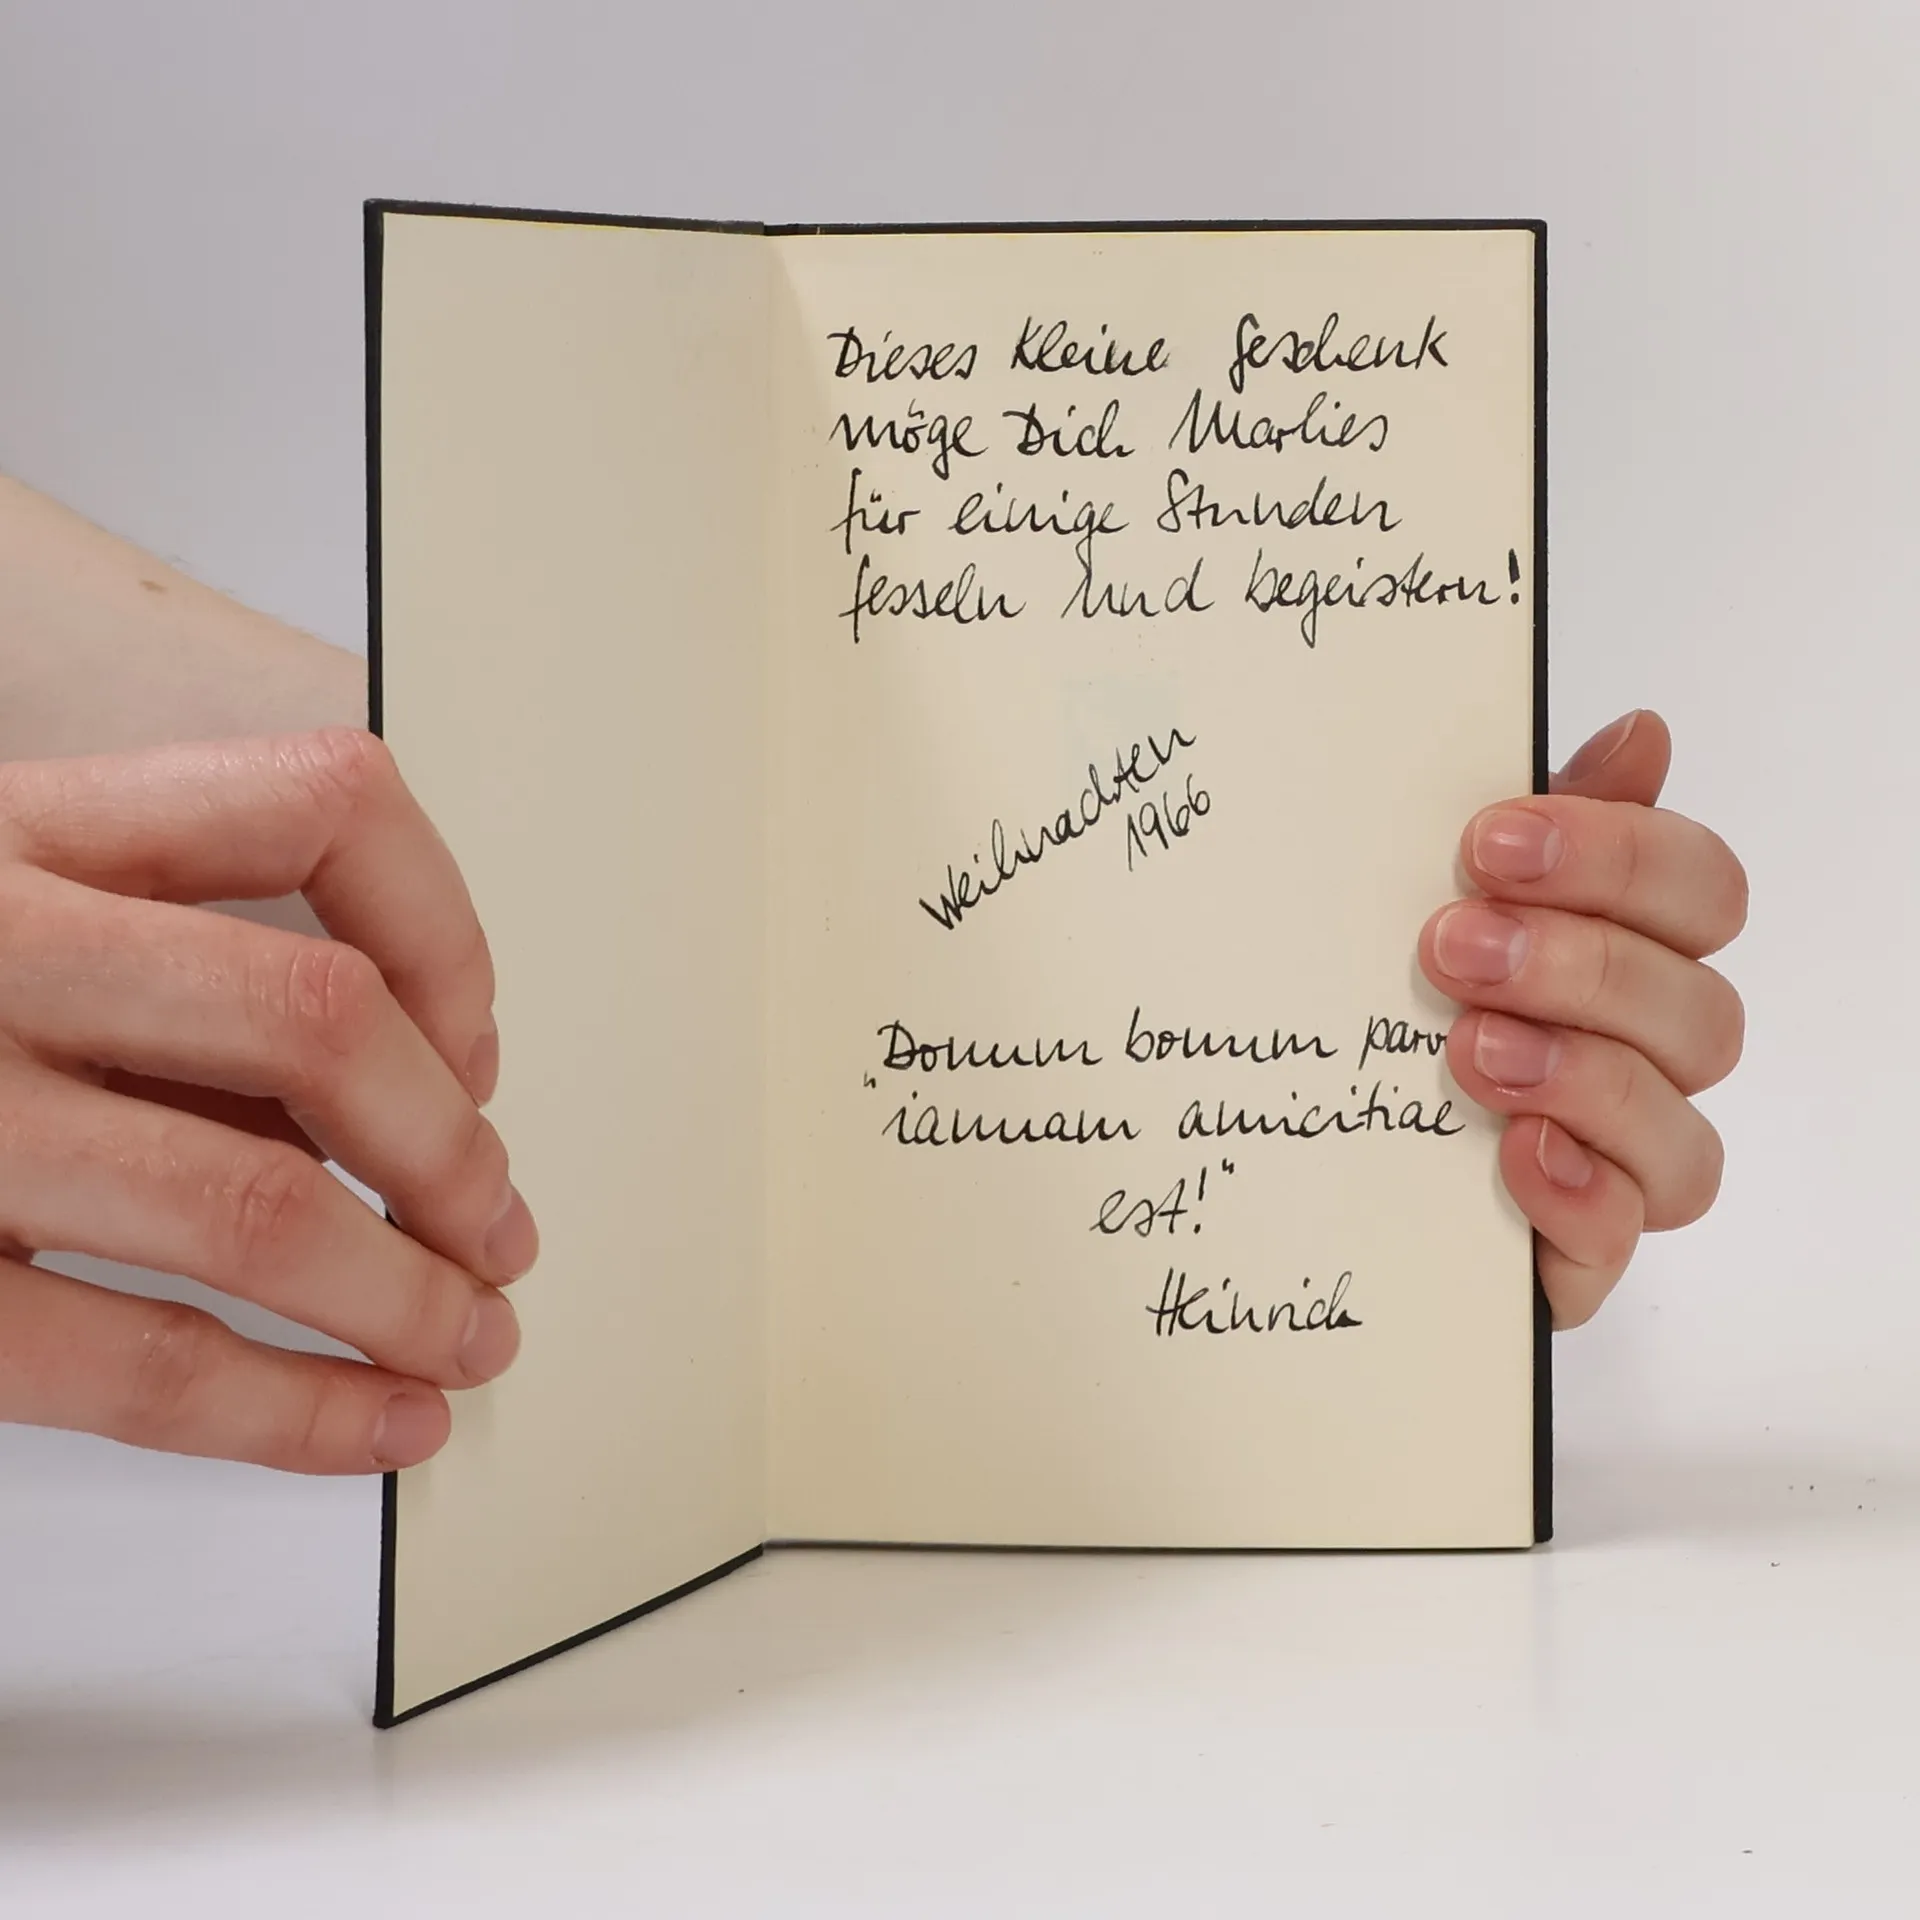 Dieses kleine Geschenk
möge Dich Marlies
für einige Stunden
fesseln und begeistern!
Weihnachten
1966
"Donum bonum
iannam amicitiae
est!"
Heinrich